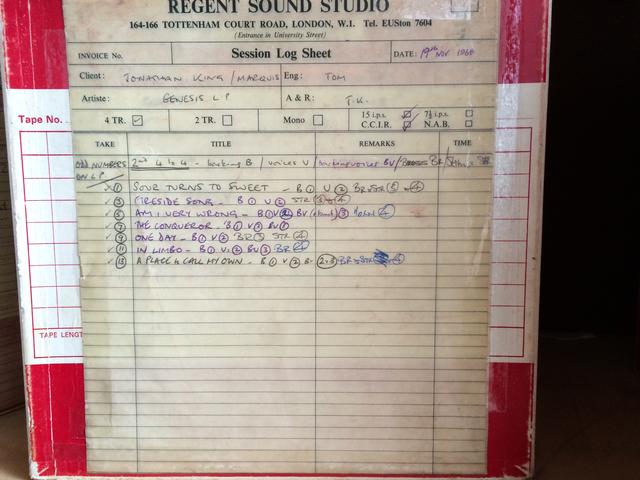 REGENT SOUND STUDIO
164-166 TOTTENHAM COURT ROAD, LONDON, W.I. Tel. EUSton 7604
(Entrance in University Street)
INVOICE No. Session Log Sheet DATE: 19th NOV 1968
Client: JONATHAN KING / MARQUIS Eng: TOM
Artiste: GENESIS LP A & R: J.K.
4 TR. 2 TR. Mono 15 i.p.s. C.C.I.R. 7½ i.p.s. N.A.B.
Tape No.
TAKE TITLE REMARKS TIME
ODD NUMBERS ON LP
2nd 4 to 4 - backing B / voices V / backing voices BV /
1 SOUR TURNS TO SWEET - B 1 V 2 BR + STR 3 + 4
3 FIRESIDE SONG - B 1 V 2 STR 3 + 4
5 AM I VERY WRONG - B 1 V 2 BV 3 4
7 THE CONQUEROR - B 1 V 3 BV
9 ONE DAY - B 1 V 2 BR 3 STR 4
11 IN LIMBO - B 1 V 2 BV 3 BR 4
13 A PLACE to CALL MY OWN - B 1 V 2 BV 2+3 BR + STR 4
TAPE LENGT